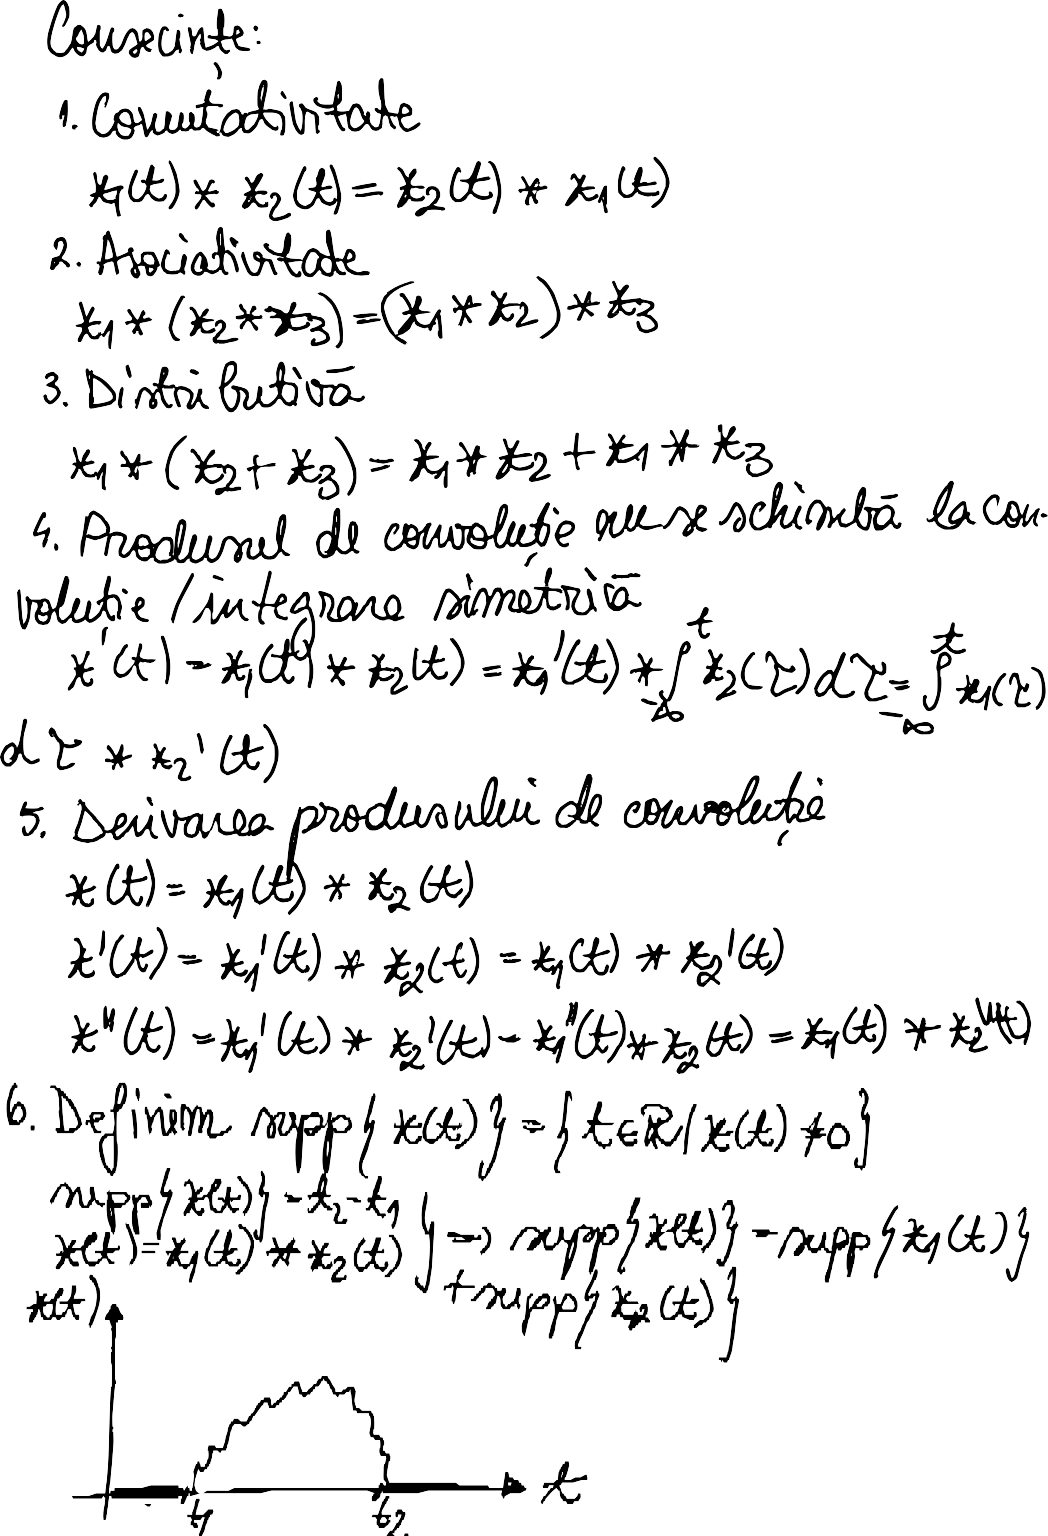 Consecințe:
1. Comutativitate
x₁(t) * x₂(t) = x₂(t) * x₁(t)
2. Asociativitate
x₁ * (x₂ * x₃) = (x₁ * x₂) * x₃
3. Distributivā
x₁ * (x₂ + x₃) = x₁ * x₂ + x₁ * x₃
4. Produsul de convoluție nu se schimbā la con-
voluție / integrare simetricā
x'(t) = x₁(t) * x₂(t) = x₁'(t) * ∫_{-∞}^{t} x₂(τ) dτ = ∫_{-∞}^{t} x₁(τ)
dτ * x₂'(t)
5. Derivarea produsului de convoluție
x(t) = x₁(t) * x₂(t)
x'(t) = x₁'(t) * x₂(t) = x₁(t) * x₂'(t)
x''(t) = x₁'(t) * x₂'(t) = x₁''(t) * x₂(t) = x₁(t) * x₂''(t)
6. Definim supp{x(t)} = {t∈ℝ / x(t) ≠ 0}
supp{x(t)} = t₂ - t₁
x(t) = x₁(t) * x₂(t) } => supp{x(t)} = supp{x₁(t)}
+ supp{x₂(t)}
x(t)
t
t₁ t₂